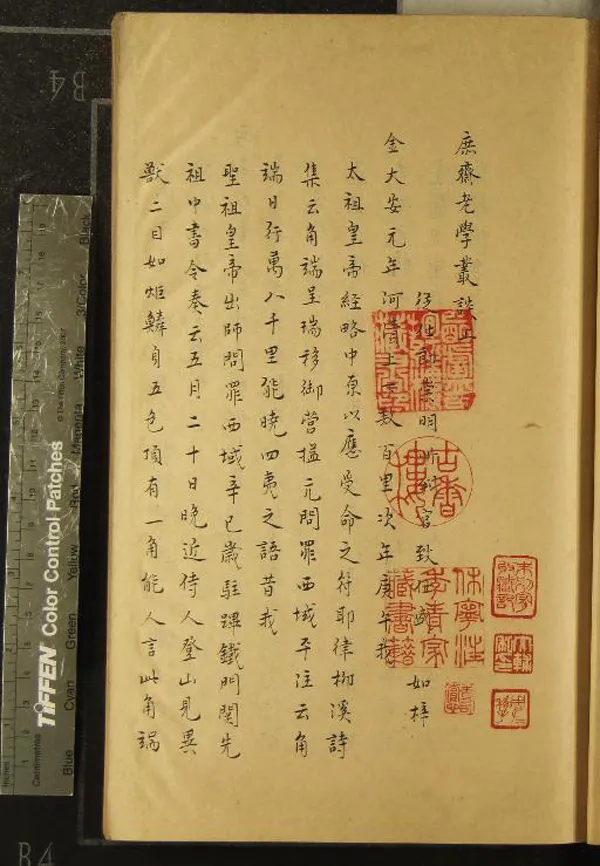 庶齋老學叢談上
從仕郎崇明州判官致仕盛 如梓
金大安元年河清上下數百里次年庚午我
太祖皇帝經略中原以應受命之符耶律柳溪詩
集云角端呈瑞移御營搤元問罪西域平注云角
端日行萬八千里能曉四夷之語昔我
聖祖皇帝出師問罪西域辛巳歲駐蹕鐵門關先
祖中書令奏云五月二十日晚近侍人登山見異
獸二目如炬鱗身五色頂有一角能人言此角端
古香樓
休寧汪
季青家
藏書籍
B4
B4
TIFFEN Color Control Patches
Blue Cyan Green Yellow Red Magenta White 3/Color Black
Inches
Centimetres